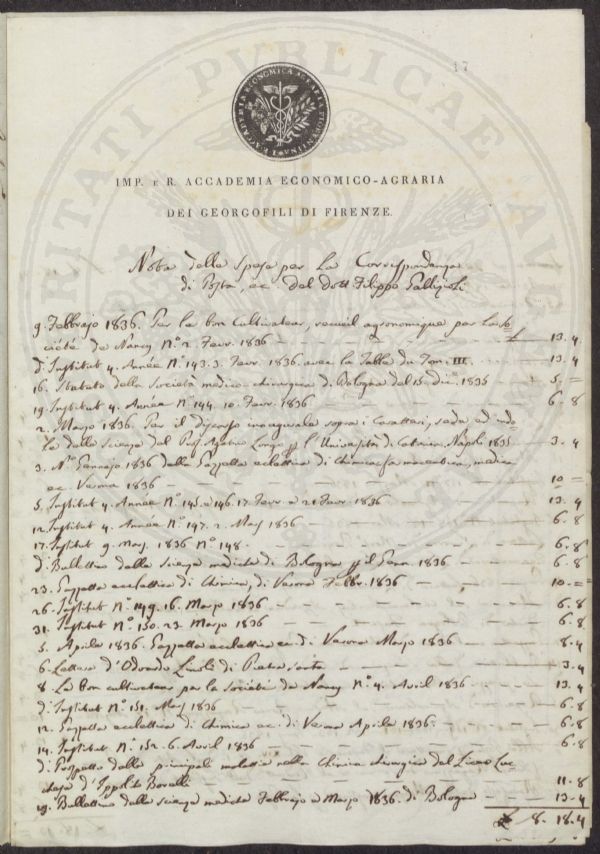 17
IMP. E R. ACCADEMIA ECONOMICO-AGRARIA
DEI GEORGOFILI DI FIRENZE.
Nota delle Spese per La Corrispondenza
di Posta, ec. del Dott. Filippo Gallizioli
9. Febbrajo 1836. Per le bon Cultivateur, recueil agronomique par la So-
ciété de Nancy N.° 2. Fevr. 1836 - - - £ - 13. 4
d.° Institut 4. Année N.° 143. 3. Fevr. 1836 avec la Table du Tom. III. - 13. 4
16. Statuto della Società medico-chirurgica di Bologna del 15. Dic. 1835 - 5. =
19. Institut 4. Année N.° 144. 10. Fevr. 1836 - 6. 8
2. Marzo 1836. Per il discorso inaugurale sopra i Caratteri, sede ed
della Scienza del Prof. Longo l'Università di Catania. Napoli 1835 - 3. 4
3. N.° Gennajo 1836 della Gazzetta eclettica di Chimica farmaceutica, medica
ec. Verona 1836 - 10 =
5. Institut 4. Année N.° 145. e 146. 17. Fevr. e 24 Fevr. 1836 - 13. 4
12. Institut 4. Année N.° 147. 2. Mars 1836 - 6. 8
17. Institut 9. Mars. 1836 N.° 148. - 6. 8
d.° Bullettino delle Scienze mediche di Bologna il Genn. 1836 - 6. 8
23. Gazzetta eclettica di Chimica, di Verona Febbr. 1836 - 10. =
26. Institut N.° 149. 16. Marzo 1836 - 6. 8
31. Institut N.° 150. 23. Marzo 1836 - 6. 8
5. Aprile 1836. Gazzetta eclettica ec. di Verona Marzo 1836 - 8. 4
6. Lettera d'Odoardo Linoli di Pietra Santa - 3. 4
8. Le bon cultivateur par la Société de Nancy N.° 4. Avril 1836 - 13. 4
d.° Institut N.° 151. Mars 1836 - 6. 8
12. Gazzetta eclettica di Chimica ec. di Verona Aprile 1836. - 6. 8
14. Institut N.° 152. 6. Avril 1836 - 6. 8
d.° Prospetto delle principali malattie nella Clinica chirurgica del Liceo Luc-
chese d'Ippolito Borelli - 11. 8
19. Bullettino delle Scienze mediche Febbrajo e Marzo 1836. di Bologna - 13. 4
£ 8. 18. 4